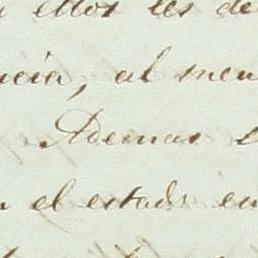 ellos les de
ncia, al men
Ademas
el estado en